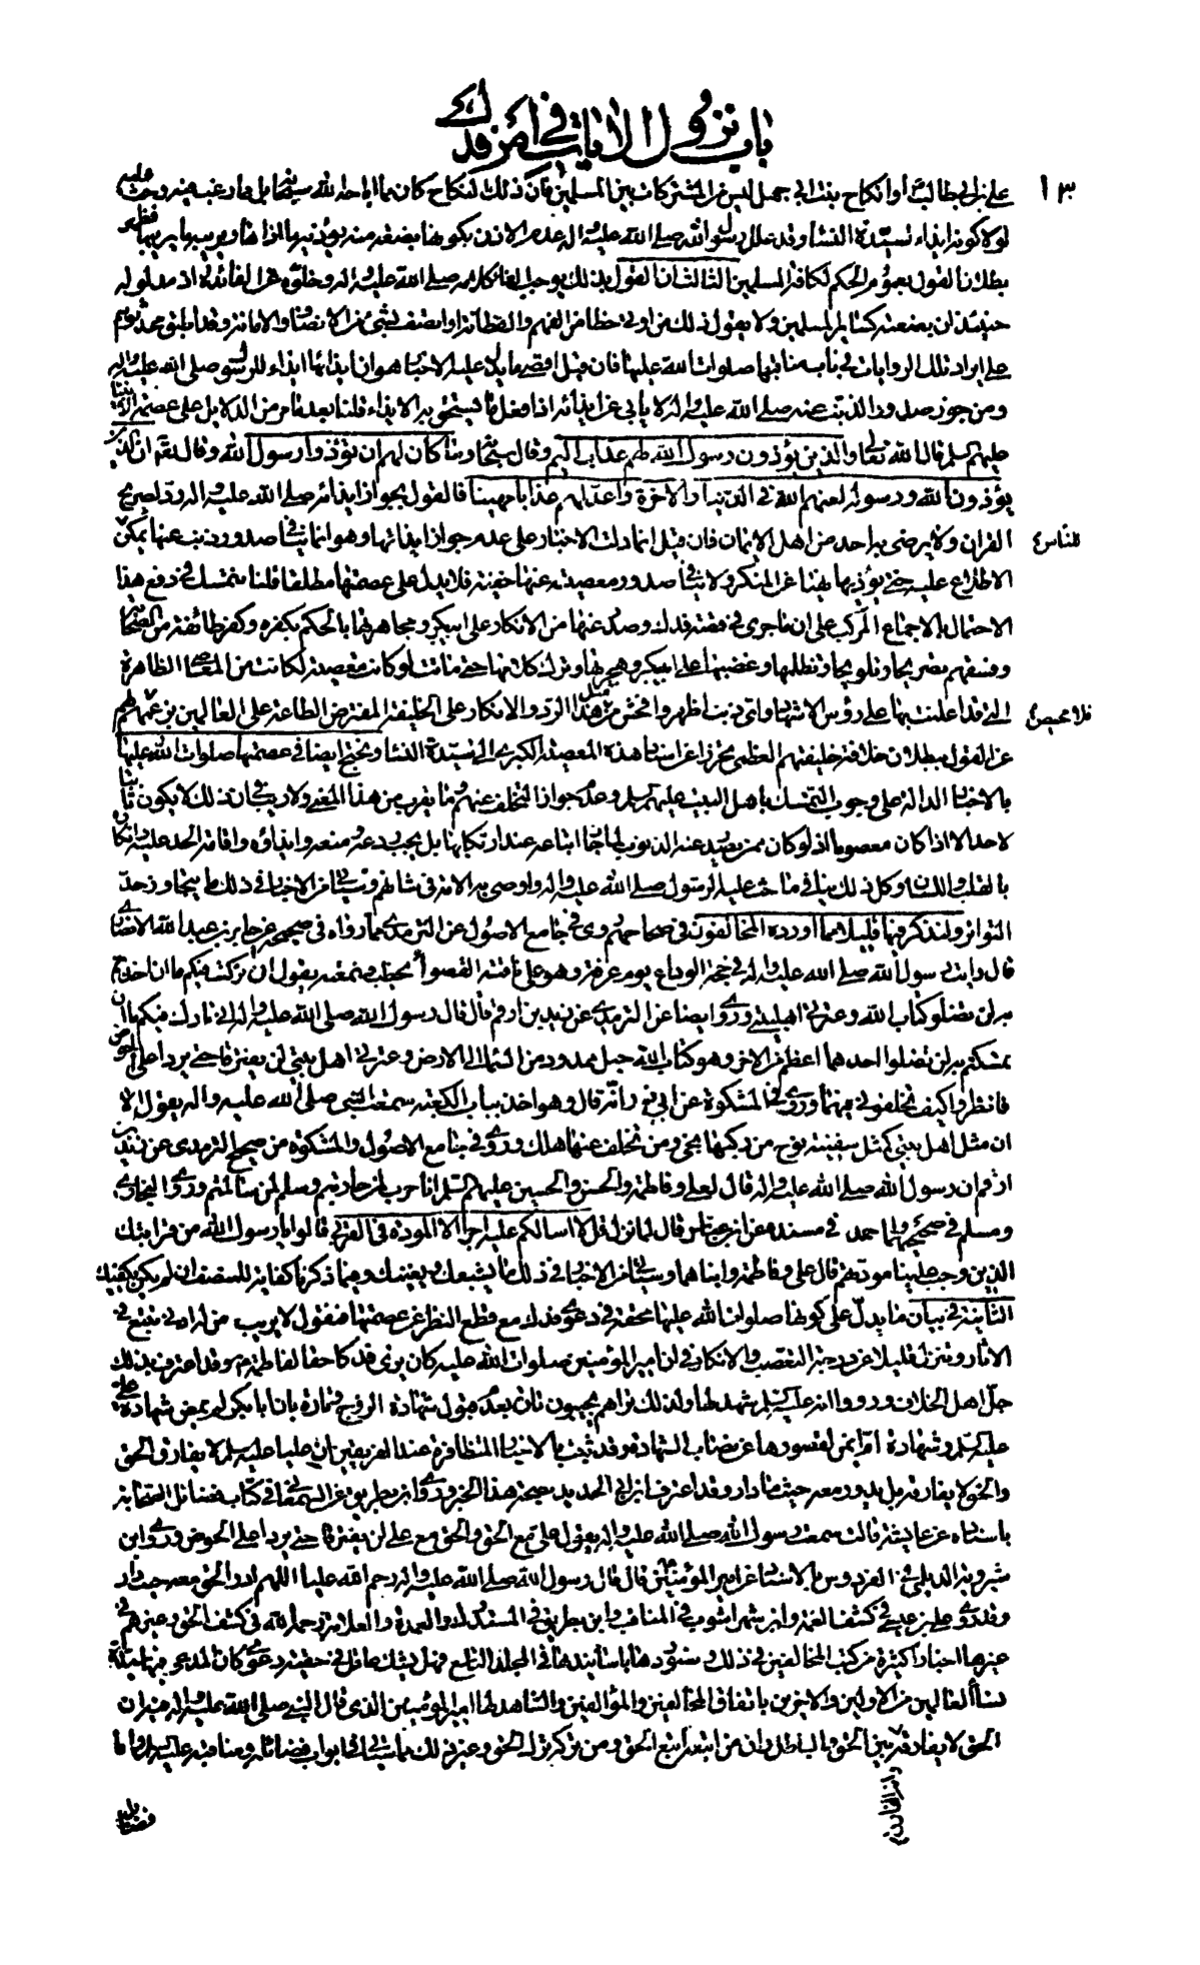 باب نزول الايات في امر فدك
١٣
علي بن ابي طالب او انكاح بنت ابي جهل ليس من المشتركات بين المسلمين فان ذلك النكاح كان مما اباحه الله سبحانه بل مما رغب فيه وحث عليه
لولا كونه ايذاء لسيدة النساء وقد علل رسول الله صلى الله عليه واله عدم الاذن بكونها بضعة منه يؤذيه ما اذاها ويريبه ما يريبها فظهر
بطلان القول بعموم الحكم لكافة المسلمين الثالث ان القول بذلك يوجب الغاء كلامه صلى الله عليه واله وخلوه عن الفائدة اذ مدلوله
حينئذ ان بضعته كسائر المسلمين ولا يقول ذلك من اوتي حظا من الفهم والفطانة او اتصف بشيء من الانصاف والامانة وقد اطبق محدثوهم
على ايراد تلك الروايات في باب مناقبها صلوات الله عليها فان قيل اقصى ما يدل عليه الاخبار هو ان ايذائها ايذاء للرسول صلى الله عليه واله
ومن جوز صدور الذنب عنه صلى الله عليه واله لا يابى عن ايذائه اذا فعل ما يستحق به الايذاء قلنا بعد ما مر من الدلايل على عصمة الانبياء
عليهم السلم قال الله تعالى والذين يؤذون رسول الله لهم عذاب اليم وقال سبحانه وما كان لهم ان تؤذوا رسول الله وقال تعالى ان الذين
يؤذون الله ورسوله لعنهم الله في الدنيا والاخرة واعد لهم عذابا مهينا فالقول بجواز ايذائه صلى الله عليه واله رد لصريح
القران ولا يرضى به احد من اهل الايمان فان قيل انما دلت الاخبار على عدم جواز ايذائها وهو انما ينافي صدور ذنب عنها يمكن
للناس
الاطلاع عليه حتى يؤذيها نهيا عن المنكر ولا ينافي صدور معصية عنها خفية فلا يدل على عصمتها مطلقا قلنا نتمسك في دفع هذا
الاحتمال بالاجماع المركب على ان ما جرى في قصة فدك وصدر عنها من الانكار على ابي بكر ومجاهرتها بالحكم بكفره وكفر طائفة من الصحابة
وفسقهم تصريحا وتلويحا وتظلمها وغضبها على ابي بكر وهجرتها وترك كلامها حتى ماتت لو كانت معصية لكانت من المعاصي الظاهرة
التي قد اعلنت بها على رؤس الاشهاد واي ذنب اظهر وافحش من مثل هذا الرد والانكار على الخليفة المفترض الطاعة على العالمين بزعمهم
فلا محيص لهم
عن القول ببطلان خلافة خليفتهم العظمى تحرزا عن اسناد هذه المعصية الكبرى الى سيدة النساء ونحتج ايضا في عصمتها صلوات الله عليها
بالاخبار الدالة على وجوب التمسك باهل البيت عليهم السلم وعدم جواز التخلف عنهم وما يقرب من هذا المعنى ولا ريب في ان ذلك لا يكون ثابتا
لاحد الا اذا كان معصوما اذ لو كان ممن يصدر عنه الذنوب لما جاز اتباعه عند ارتكابها بل يجب ردعه ومنعه وايذاؤه واقامة الحد عليه وانكاره
بالقلب واللسان وكل ذلك ينافي ما حث عليه الرسول صلى الله عليه واله واوصى به الامة في شانهم وسياتي من الاخبار في ذلك ما يتجاوز حد
التواتر ولنذكر فيها قليلا مما اورده المخالفون في صحاحهم روى في جامع الاصول عن الترمدي مما رواه في صحيحه عن جابر بن عبد الله الانصاري
قال رايت رسول الله صلى الله عليه واله في حجة الوداع يوم عرفة وهو على ناقته القصواء يخطب فسمعته يقول اني تركت فيكم ما ان اخذتم
به لن تضلوا كتاب الله وعترتي اهل بيتي وروى ايضا عن الترمدي عن زيد بن ارقم قال قال رسول الله صلى الله عليه واله اني تارك فيكم ما ان
تمسكتم به لن تضلوا احدهما اعظم من الاخر وهو كتاب الله حبل ممدود من السماء الى الارض وعترتي اهل بيتي لن يفترقا حتى يردا على الحوض
فانظروا كيف تخلفوني فيهما وروى في المشكوة عن ابي ذر انه قال وهو اخذ بباب الكعبة سمعت النبي صلى الله عليه واله يقول الا
ان مثل اهل بيتي كمثل سفينة نوح من ركبها نجى ومن تخلف عنها هلك وروى في جامع الاصول والمشكوة من صحيح الترمدي عن زيد بن
ارقم ان رسول الله صلى الله عليه واله قال لعلي وفاطمة والحسن والحسين عليهم السلم انا حرب لمن حاربتم وسلم لمن سالمتم وروى البخاري
ومسلم في صحيحيهما واحمد في مسنده عن ابن عباس قال لما نزل قل لا اسالكم عليه اجرا الا المودة في القربى قالوا يا رسول الله من قرابتك
الذين وجبت علينا مودتهم قال علي وفاطمة وابناهما وسياتي من الاخبار في ذلك ما يشبعك ويغنيك وفيما ذكرنا كفاية للمنصف ان لم يكن يكفيك
الثانية في بيان ما يدل على كونها صلوات الله عليها محقة في دعوى فدك مع قطع النظر عن عصمتها فنقول لا ريب على من له ادنى تتبع في
الاثار وتنزل قليلا عن درجة التعصب والانكار في ان امير المؤمنين صلوات الله عليه كان يرى فدكا حقا لفاطمة وقد اعترف بذلك
جل اهل الخلاف ورووا انه عليه السلم شهد لها ولذلك تراهم يجيبون تارة بعدم قبول شهادة الزوج وتارة بان ابا بكر لم يمض شهادة علي
عليه السلم وشهادة ام ايمن لقصورها عن نصاب الشهادة وقد ثبت بالاخبار المتظافرة عند الفريقين ان عليا عليه السلم لا يفارق الحق
والحق لا يفارقه بل يدور معه حيثما دار وقد اعترف ابن ابي الحديد بصحة هذا الخبر وروى ابن بطريق عن السمعاني في كتاب فضائل الصحابة
باسناده عن عايشة قالت سمعت رسول الله صلى الله عليه واله يقول علي مع الحق والحق مع علي لن يفترقا حتى يردا علي الحوض وروى ابن
شيرويه الديلمي في الفردوس بالاسناد عن امير المؤمنين قال قال رسول الله صلى الله عليه واله رحم الله عليا اللهم ادر الحق معه حيث دار
وقد روى علي بن عيسى في كشف الغمة وابن شهر اشوب في المناقب وابن بطريق في المستدرك والعمدة والعلامة رحمه الله في كشف الحق وغيرهم في
غيرها اخبارا كثيرة من كتب المخالفين في ذلك وسنوردها باسانيدها في المجلد التاسع فهل يشك عاقل في حقية دعوى كان المدعي فيها سيدة
نساء العالمين من الاولين والاخرين باتفاق المخالفين والمؤالفين والشاهد لها امير المؤمنين الذي قال النبي صلى الله عليه واله فيه ان
الحق لا يفارقه وانه الفاروق بين الحق والباطل وان من اتبعه اتبع الحق ومن تركه ترك الحق وغير ذلك مما سياتي في ابواب فضائله ومناقبه عليه السلم واما
فضائل